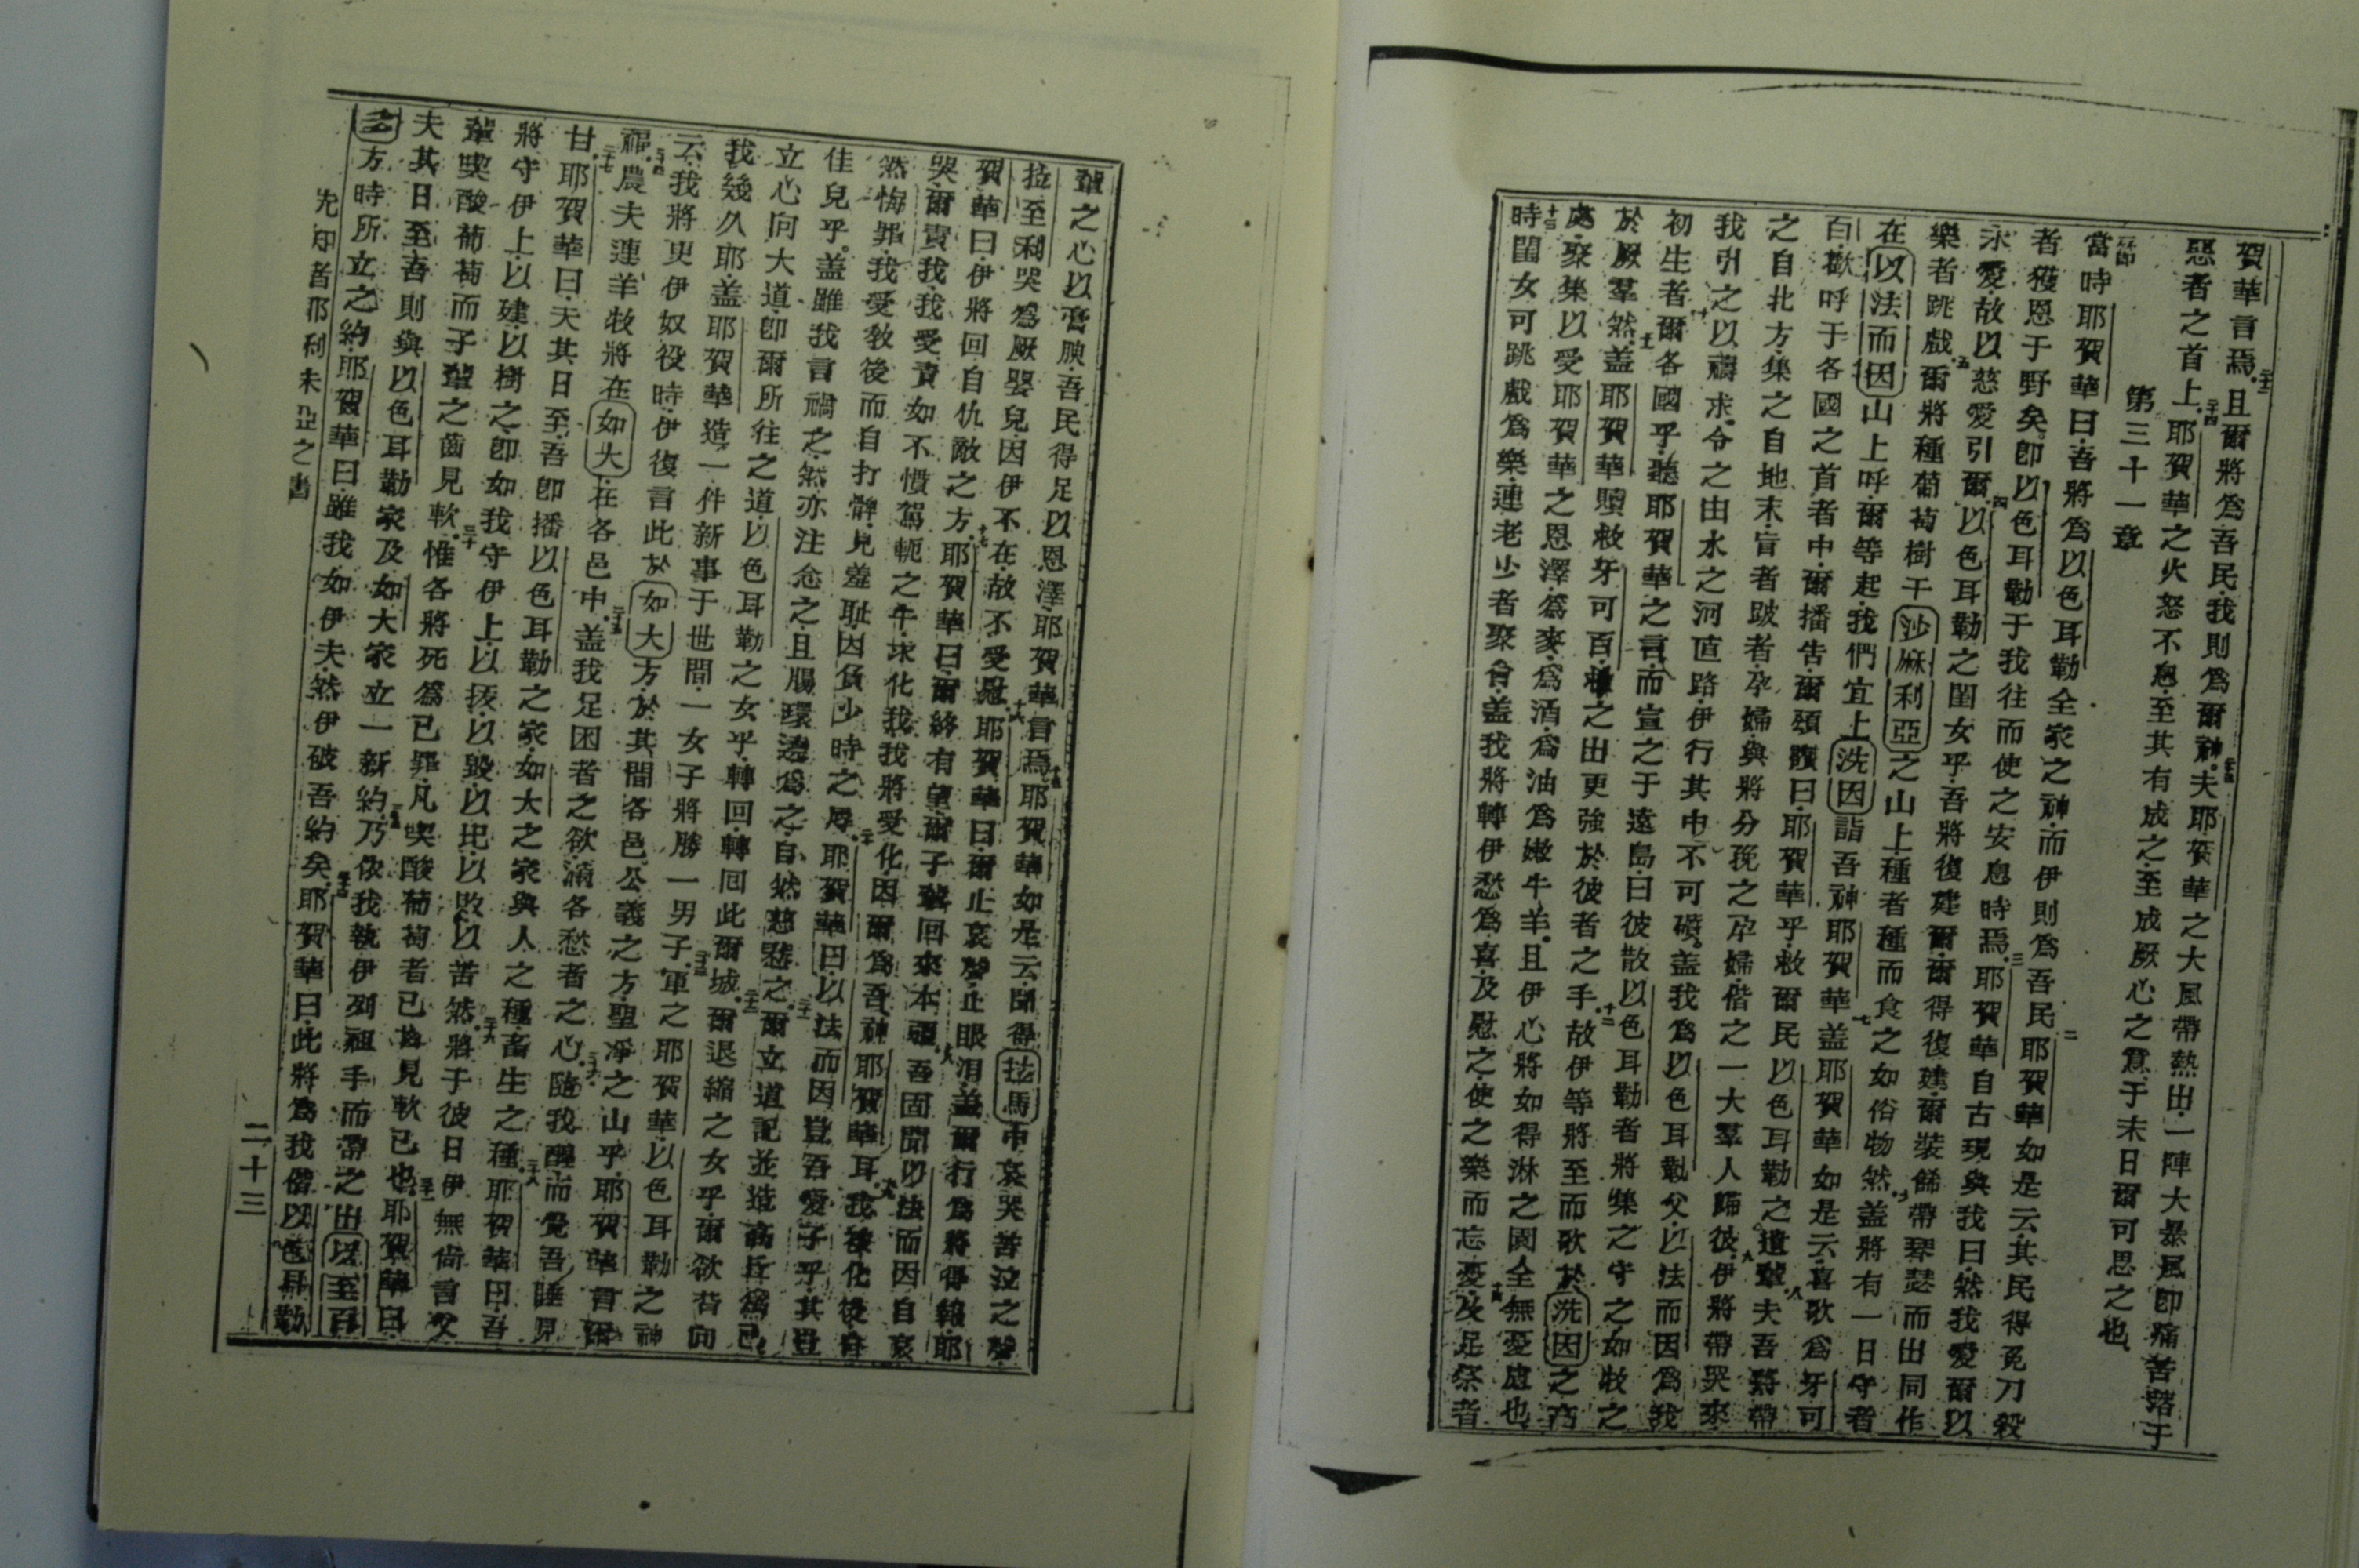 賀華言焉且爾將爲吾民我則爲爾神夫耶賀華之大風帶熱出一陣大暴風即痛苦落于
惡者之首上耶賀華之火怒不息至其有成之至成厥心之意于末日爾可思之也
第三十一章
當時耶賀華曰吾將爲以色耳勒全家之神而伊則爲吾民耶賀華如是云其民得免刀殺
者獲恩于野矣即以色耳勒于我往而使之安息時焉耶賀華自古現與我曰然我愛爾以
永愛故以慈愛引爾以色耳勒之閨女乎吾將復建爾爾得復建爾裝餙帶琴瑟而出同作
樂者跳戲爾將種葡萄樹于沙麻利亞之山上種者種而食之如俗物然蓋將有一日守者
在以法而因山上呼爾等起我們宜上洗因詣吾神耶賀華蓋耶賀華如是云喜歌爲牙可
百歡呼于各國之首者中爾播告爾頌讚曰耶賀華乎救爾民以色耳勒之遺輩夫吾將帶
之自北方集之自地末盲者跛者孕婦與將分娩之孕婦偕之一大羣人歸彼伊將帶哭來
我引之以禱求令之由水之河直路伊行其中不可礩蓋我爲以色耳勒父以法而因爲我
初生者爾各國乎聽耶賀華之言而宣之于遠島曰彼散以色耳勒者將集之守之如牧之
於厥羣然蓋耶賀華贖救牙可百之出更強於彼者之手故伊等將至而歌於洗因之高
處聚集以愛耶賀華之恩澤爲麥爲酒爲油爲嫩牛羊且伊心將如得淋之園全無憂慮也
時閨女可跳戲爲樂連老少者聚會蓋我將轉伊愁爲喜及慰之使之樂而忘憂及足祭者
輩之心以膏腴吾民得足以恩澤耶賀華言焉耶賀華如是云聞得拉馬中哀哭苦泣之聲
拉至利哭爲厥嬰兒因伊不在故不受慰耶賀華曰爾止哀聲止眼淚蓋爾行爲將得報耶
賀華曰伊將回自仇敵之方耶賀華曰爾終有望爾子輩回來本疆吾固聞以法而因自哀
哭爾責我我受責如不慣駕軛之牛求化我我將受化因爾爲吾神耶賀華耳我被化後自
然悔罪我受教後而自打髀見羞耻因負少時之辱耶賀華曰以法而因豈吾愛子乎其豈
佳兒乎蓋雖我言禍之然亦注念之且腸環遶爲之自然慈悲之爾立道記並造高丘爲己
立心向大道即爾所往之道以色耳勒之女乎轉回轉回此爾城爾退縮之女乎爾欲背向
我幾久耶蓋耶賀華造一件新事于世間一女子將勝一男子軍之耶賀華以色耳勒之神
云我將更伊奴役時伊復言此於如大方於其間各邑公義之方聖凈之山乎耶賀華言爾
福農夫連羊牧將在如大在各邑中蓋我足困者之欲滿各愁者之心隨我醒而覺吾睡見
甘耶賀華曰夫其日至吾即播以色耳勒之家如大之家與人之種畜生之種耶賀華曰吾
將守伊上以建以樹之即如我守伊上以拔以毀以圯以敗以苦然將于彼日伊無尙言父
輩喫酸葡萄而子輩之齒見軟惟各將死爲己罪凡喫酸葡萄者己齒見軟已也耶賀華曰
夫其日至吾則與以色耳勒家及如大家立一新約乃依我執伊列祖手而帶之出以至百
多方時所立之約耶賀華曰雖我如伊夫然伊破吾約矣耶賀華曰此將爲我偕以色耳勒
先知者耶利未亞之書
二十三